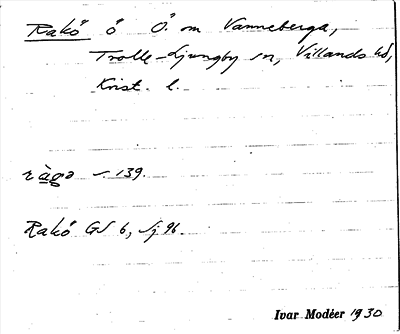 Rakö ö Ö. om Vanneberga,
Trolle-Ljungby sn, Villands hd,
Krist. l.
s. 139.
Rakö GS 6, Lj 96.
Ivar Modéer 1930